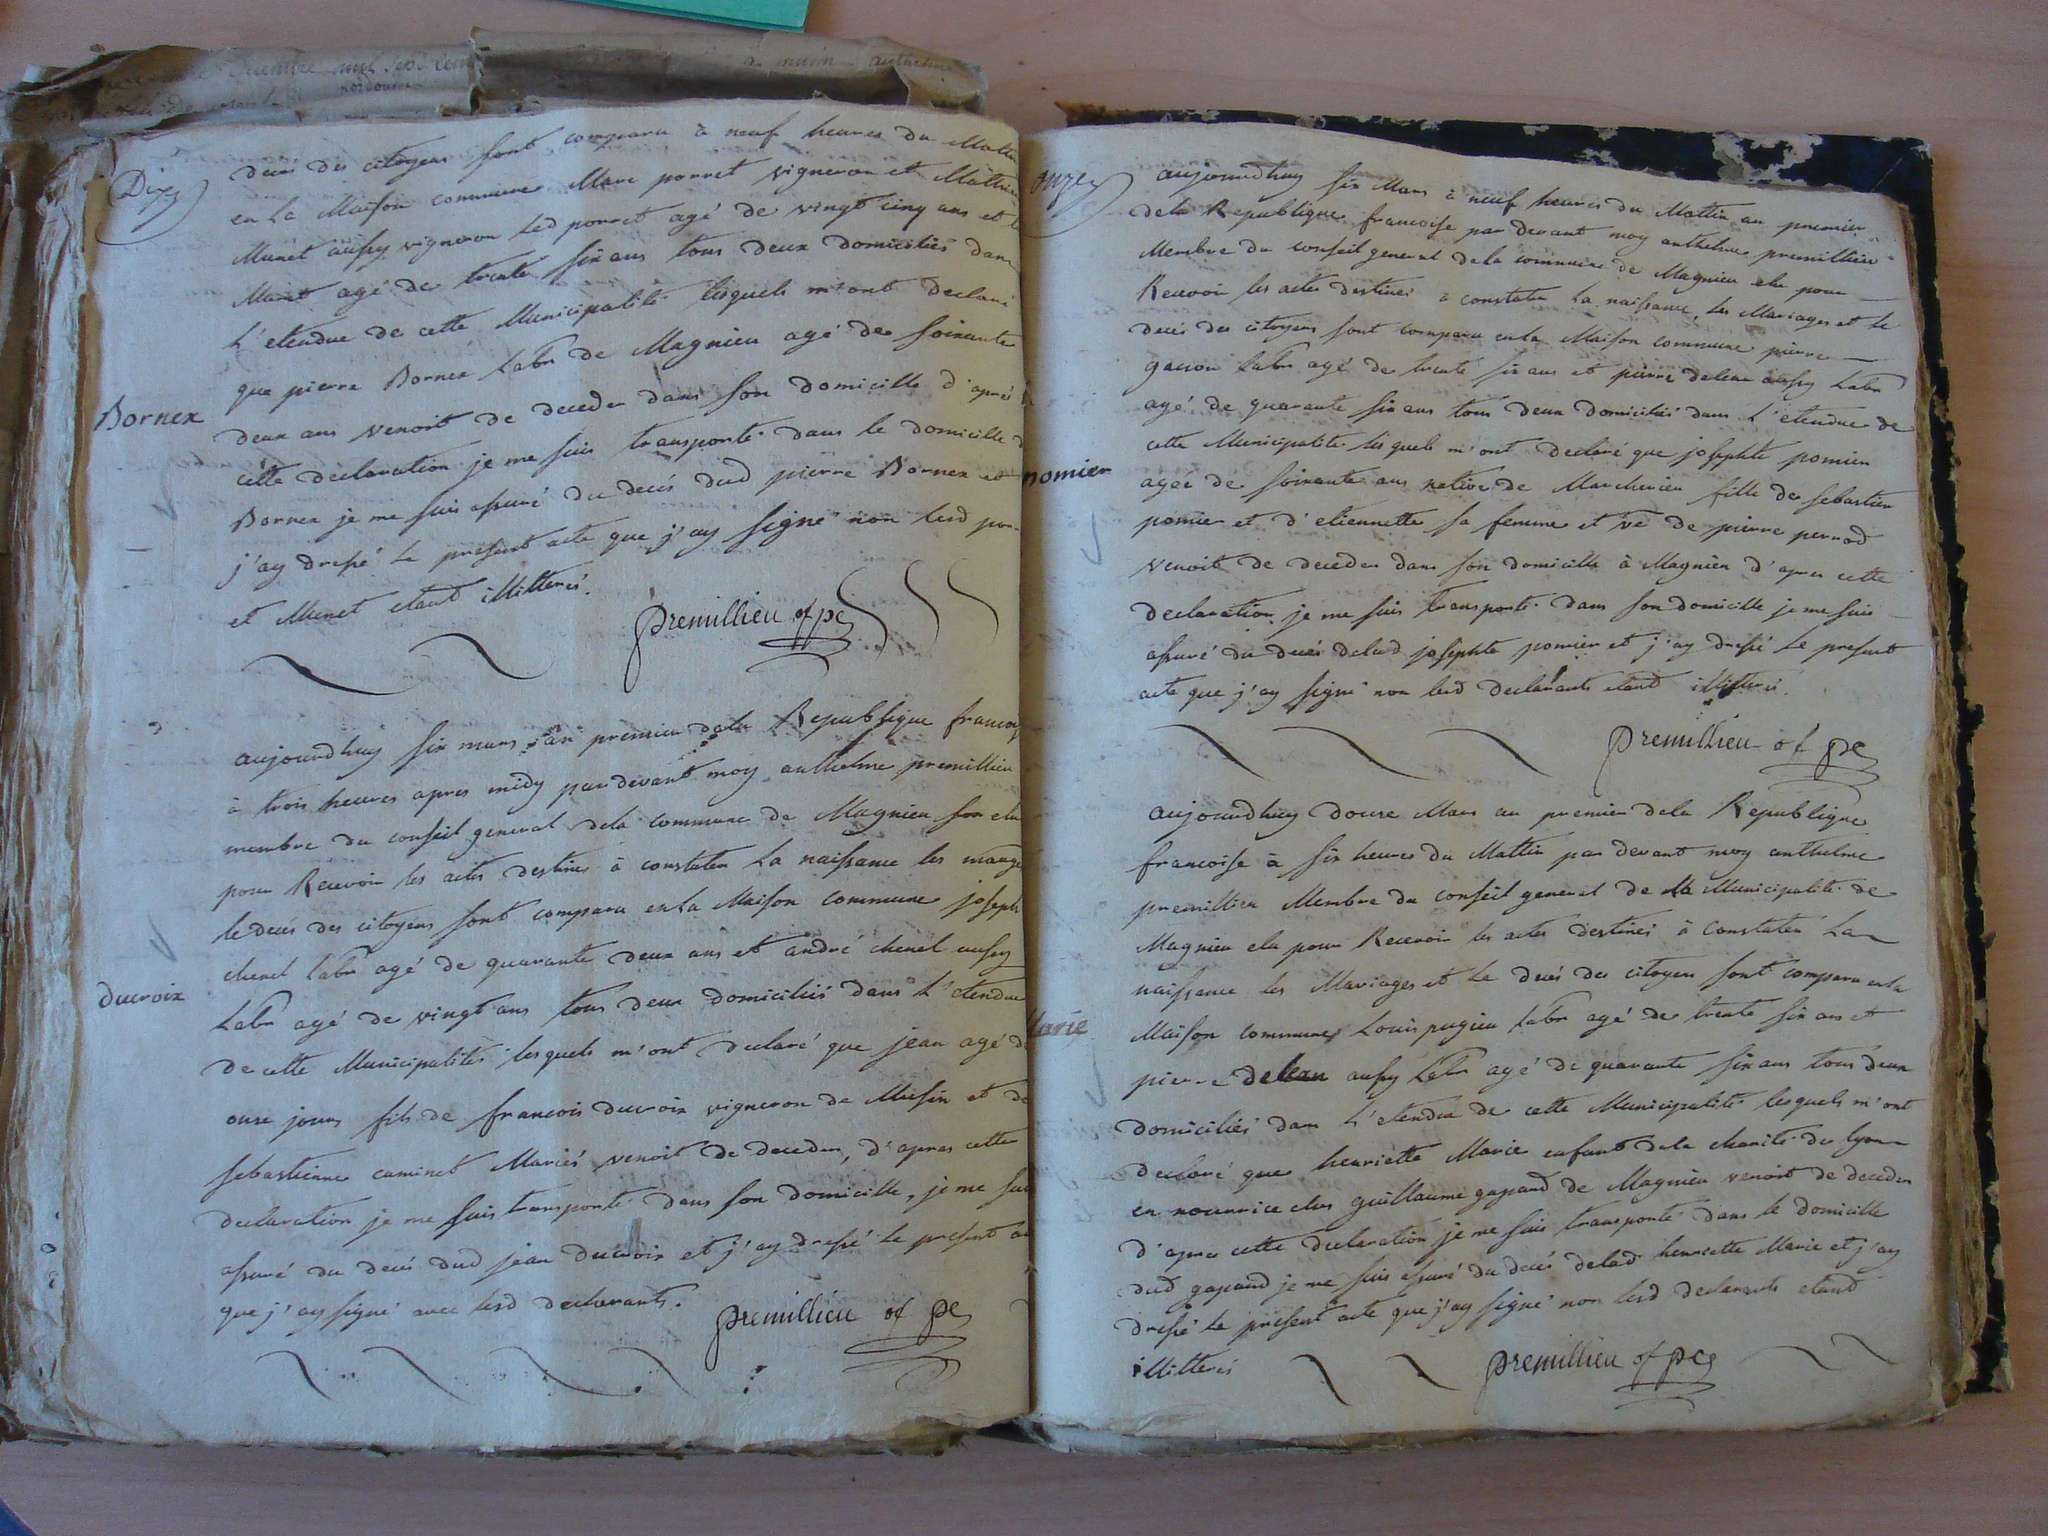 Dix
decès des citoyens sont comparu à neuf heures du Mattin
en La Maison commune Marc porret vigneron et Mathieu
Munet aussy vigneron led porret agé de vingt cinq ans et
Munet agé de trente six ans tous deux domiciliés dans
L'etendue de cette Municipalité lesquels m'ont declaré
que pierre Bornex Labr de Magnieu agé de soixante
Bornex
deux ans venoit de deceder dans son domicille d'après
cette declaration je me suis transporté dans le domicille d
Bornex je me suis assuré du decés dud pierre Bornex et
j'ay dressé Le present acte que j'ay signé non lesd por-
et Munet etant illitterés.
premillieu of pc
aujourdhuy six mars an premier dela Republique francoise
à trois heures apres midy pardevant moy anthelme premillieu
membre du conseil general dela commune de Magnieu
pour Recevoir les actes destinés à constater La naissance les mariage
le decés des citoyens sont comparu en La Maison commune joseph
chenel Labr agé de quarante deux ans et andré chenel aussy
ducroix
Labr agé de vingt ans tous deux domiciliés dans L'etendue
de cette Municipalités lesquels m'ont declaré que jean agé de
onze jours fils de francois ducroix vigneron de Musin et de
sebastienne caminet Mariés venoit de deceder, d'apres cette
declaration je me suis transporté dans son domicille, je me suis
assuré du decés dud jean ducroix et j'ay dressé le present
que j'ay signé avec lesd declarants.
premillieu of pc
onze
aujourdhuy six Mars à neuf heures du Mattin an premier
dela Republique francoise par devant moy anthelme premillieu
Membre du conseil general dela commune de Magnieu elu pour
Recevoir les actes destinés à constater La naissance, les Mariages et le
decés des citoyens sont comparu en La Maison commune pierre
gacon Labr agé de trente six ans et pierre delean aussy Labr
agé de quarante six ans tous deux domiciliés dans L'etendue de
cette Municipalité lesquels m'ont declaré que josephte pomier
pomier
agée de soixante ans native de Marchieu fille de sebastien
pomier et d'etiennette sa femme et ve de pierre pernod
venoit de deceder dans son domicille à Magnieu d'apres cette
declaration je me suis transporté dans son domicille je me suis
assuré du decés delad josephte pomier et j'ay dressé Le present
acte que j'ay signé non lesd declarants etant illitterés.
premillieu of pc
aujourdhuy douze Mars an premier dela Republique
francoise à six heures du Mattin par devant moy anthelme
premillieu Membre du conseil general de la Municipalité de
Magnieu elu pour Recevoir les actes destinés à Constater La
naissance les Mariages et Le decés des citoyens sont comparu en La
Marie
Maison commune Louis pugieu Labr agé de trente six ans et
pierre delean aussy Labr agé de quarante six ans tous deux
domiciliés dans L'etendue de cette Municipalité lesquels m'ont
declaré que henriette Marie enfant dela charité de lyon
en nourrice ches guillaume gapand de Magnieu venoit de deceder
d'apres cette declaration je me suis transporté dans le domicille
dud gapand je me suis assuré du decés delad henriette Marie et j'ay
dressé Le present acte que j'ay signé non lesd declarants etand
illitterés
premillieu of pc